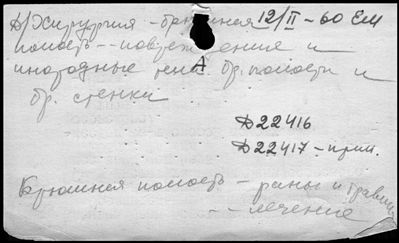 Д/Хирургия - брюшная 12/II-60 Ем
полость - повреждения и
инородные тела бр. полости и
А
бр. стенки
Д22416
Д22417 - прим.
Брюшная полость - раны и травмы
- - лечение